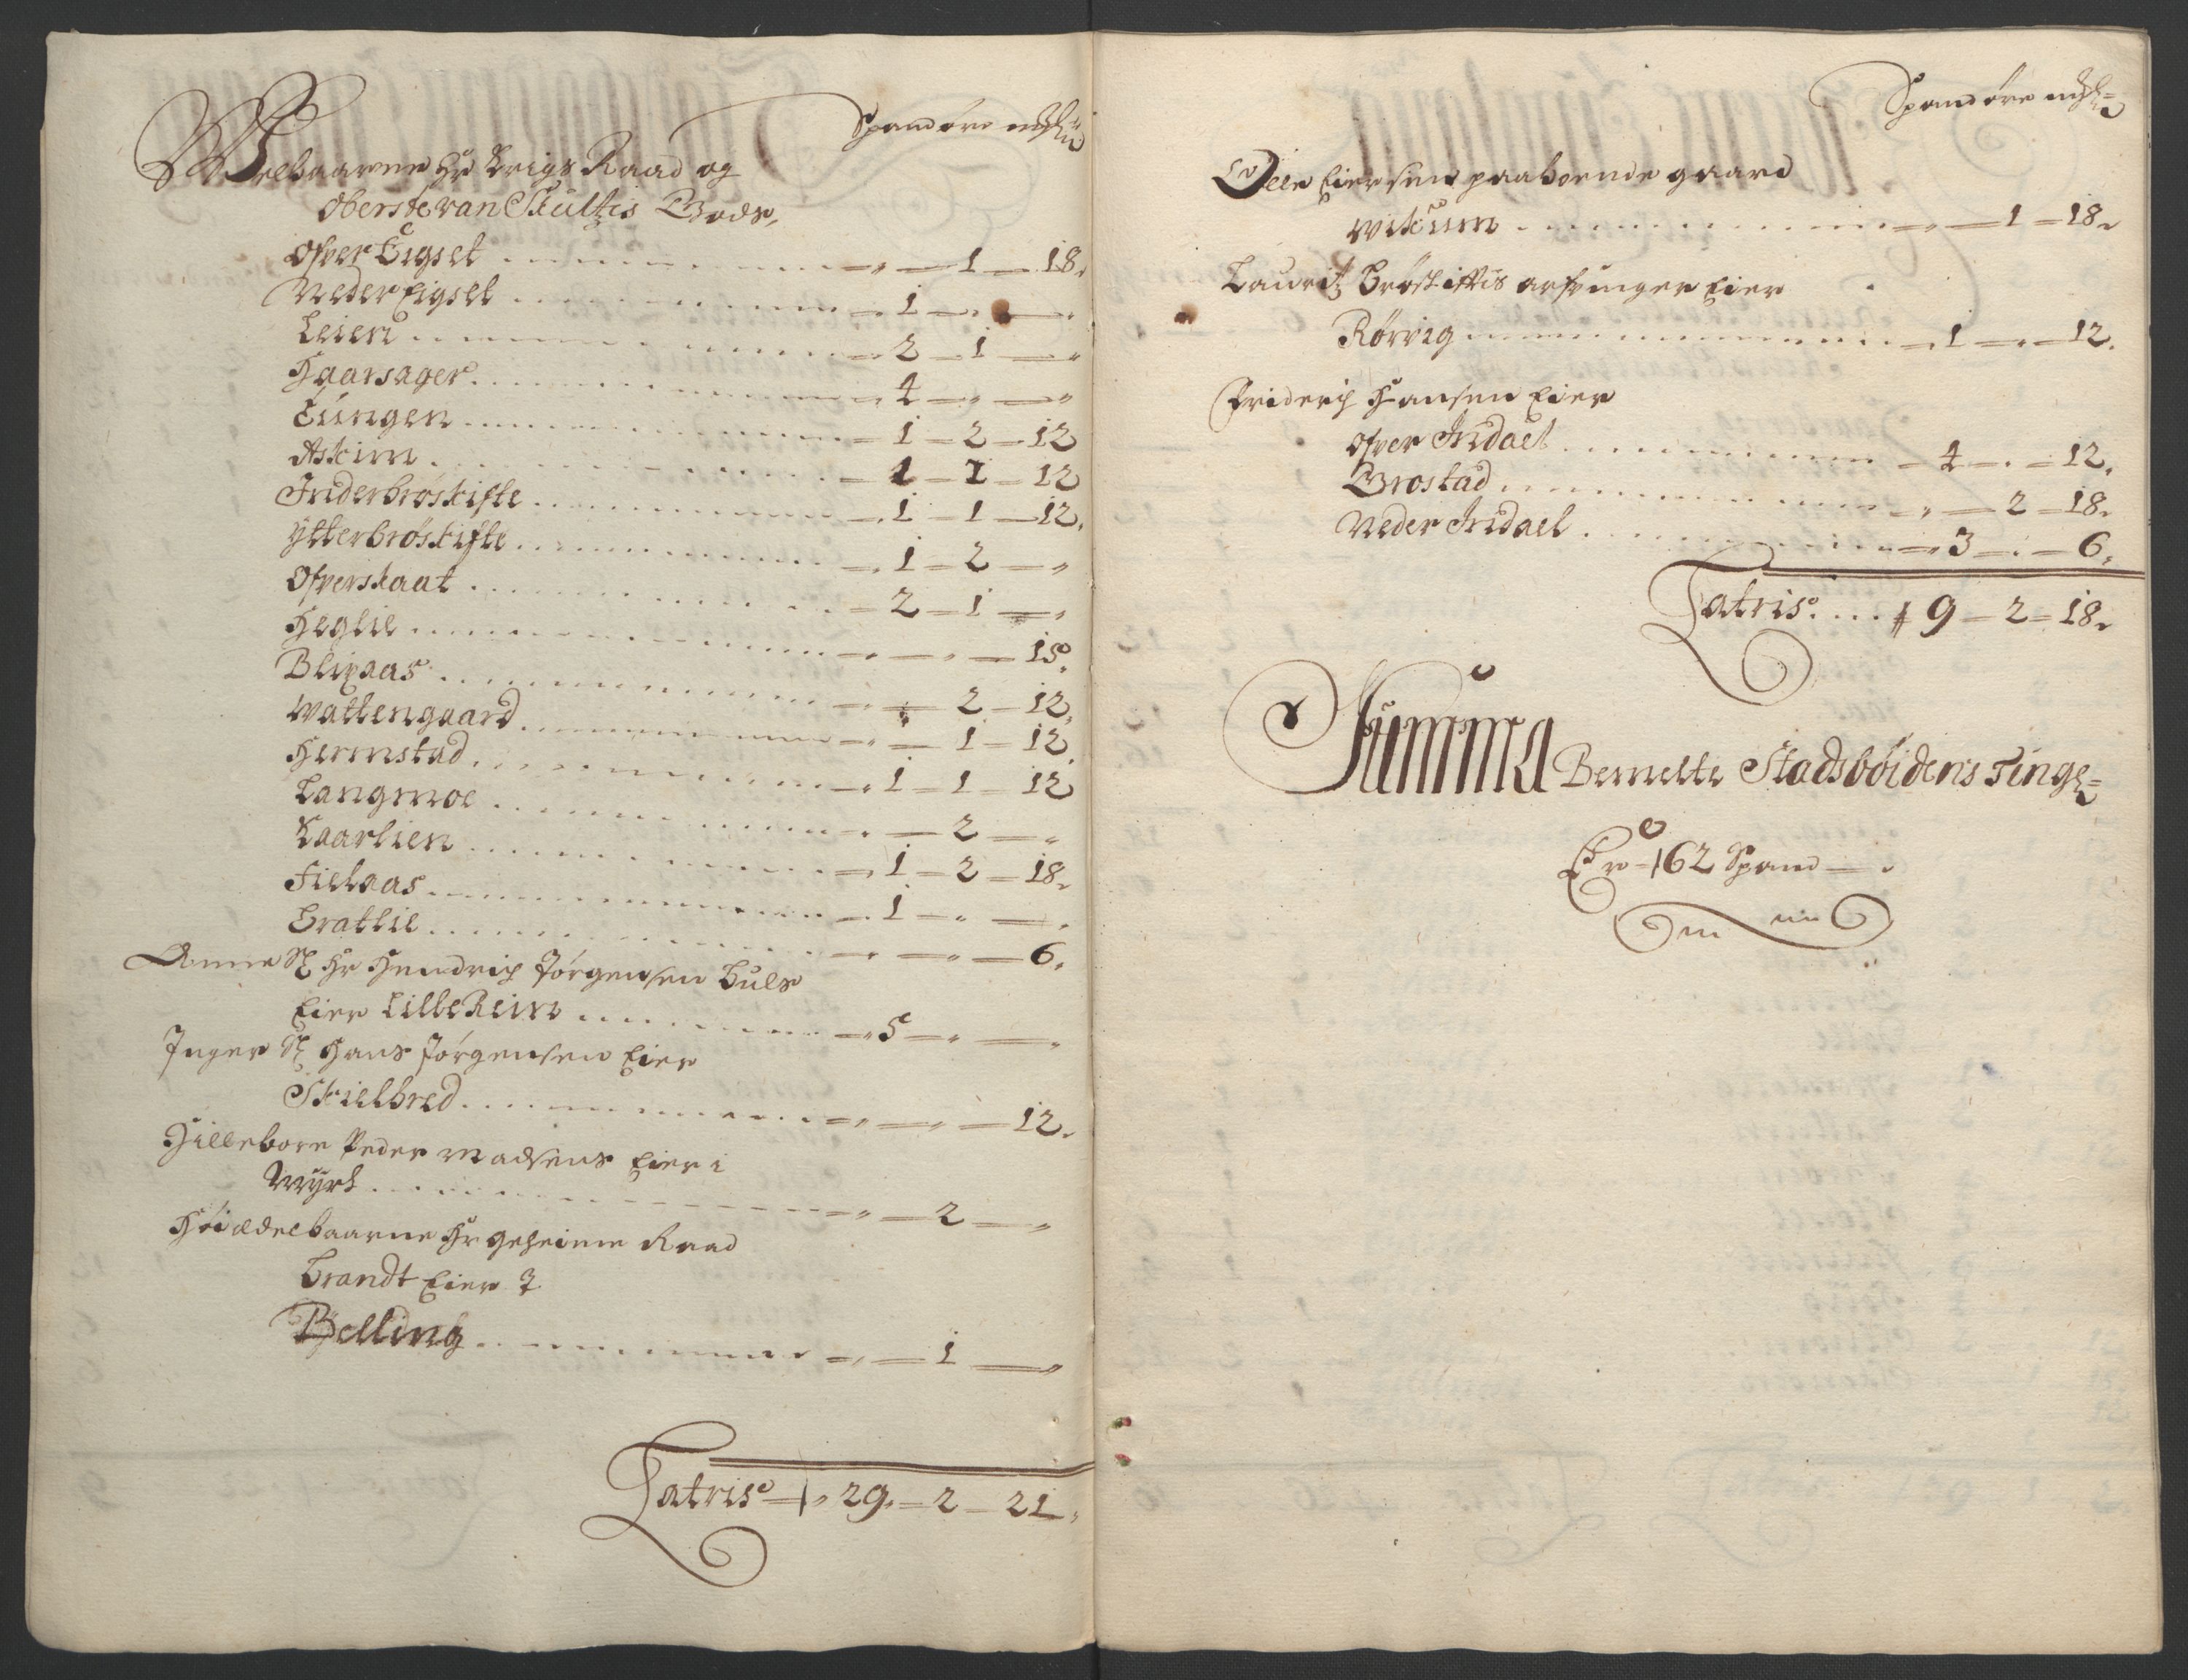 Spand øre mҟl
Welbaarne Hr Krigs Raad og
Oberste van Skultzis Godz,
Ofver Eigset . . . . „ — 1 — 18.
Neder Eigset . . . . 1 — „ — „
Leien . . . . 2 — 1 — „
Haarsager . . . . 4 — „ — „
Tüngen . . . . 1 — 2 — 12
Askim . . . . 1 — 1 — 12
Inderbrøskifte . . . . 1 — 1 — 12.
Ytterbrøskifte . . . . 1 — 2 — „
Ofverskaat . . . . 2 — 1 — „
Heglie . . . . „ — „ — 15.
Blixaas . . . . „ — 2 — 12.
Wattengaard . . . . „ — 1 — 12.
Hermstad . . . . 1 — 1 — 12
Langmoe . . . . „ — 2 — „
Kaarlien . . . . 1 — 2 — 18.
Fielaas . . . . 1 — „ — „
Brattlie . . . . „ — „ — 6.
Anne Sl Hr Hendrich Jørgensen Huls
Eier Lille Reim . . . . 5 — „ — „
Inger Sl Hans Jørgensen Eier
Skielbred . . . . „ — „ — 12.
Hillebore Peder Madsens Eier i
Myrk . . . . „ — 2 — „
Høiædelbaarne Hr Geheime Raad
Brandt Eier J
Belling . . . . „ — 1 — „
Latris — 29 — 2 — 21.
Spand øre mҟl
Olle Eiersens paaboende gaard
Witsüm . . . . „ — 1 — 18.
Lauritz Brøskiftis arfvinger Eier
Rørvig . . . . 1 — „ — 12.
Friderich Hansen Eier
Ofver Indael . . . . 4 — „ — 12.
Grostad . . . . „ — 2 — 18.
Neder Indael . . . . 3 — „ — 6.
Latris . . . . 9 — 2 — 18.
Summa Bemelte Stadsbøidens Tingl=
Er — 162 Spand — „